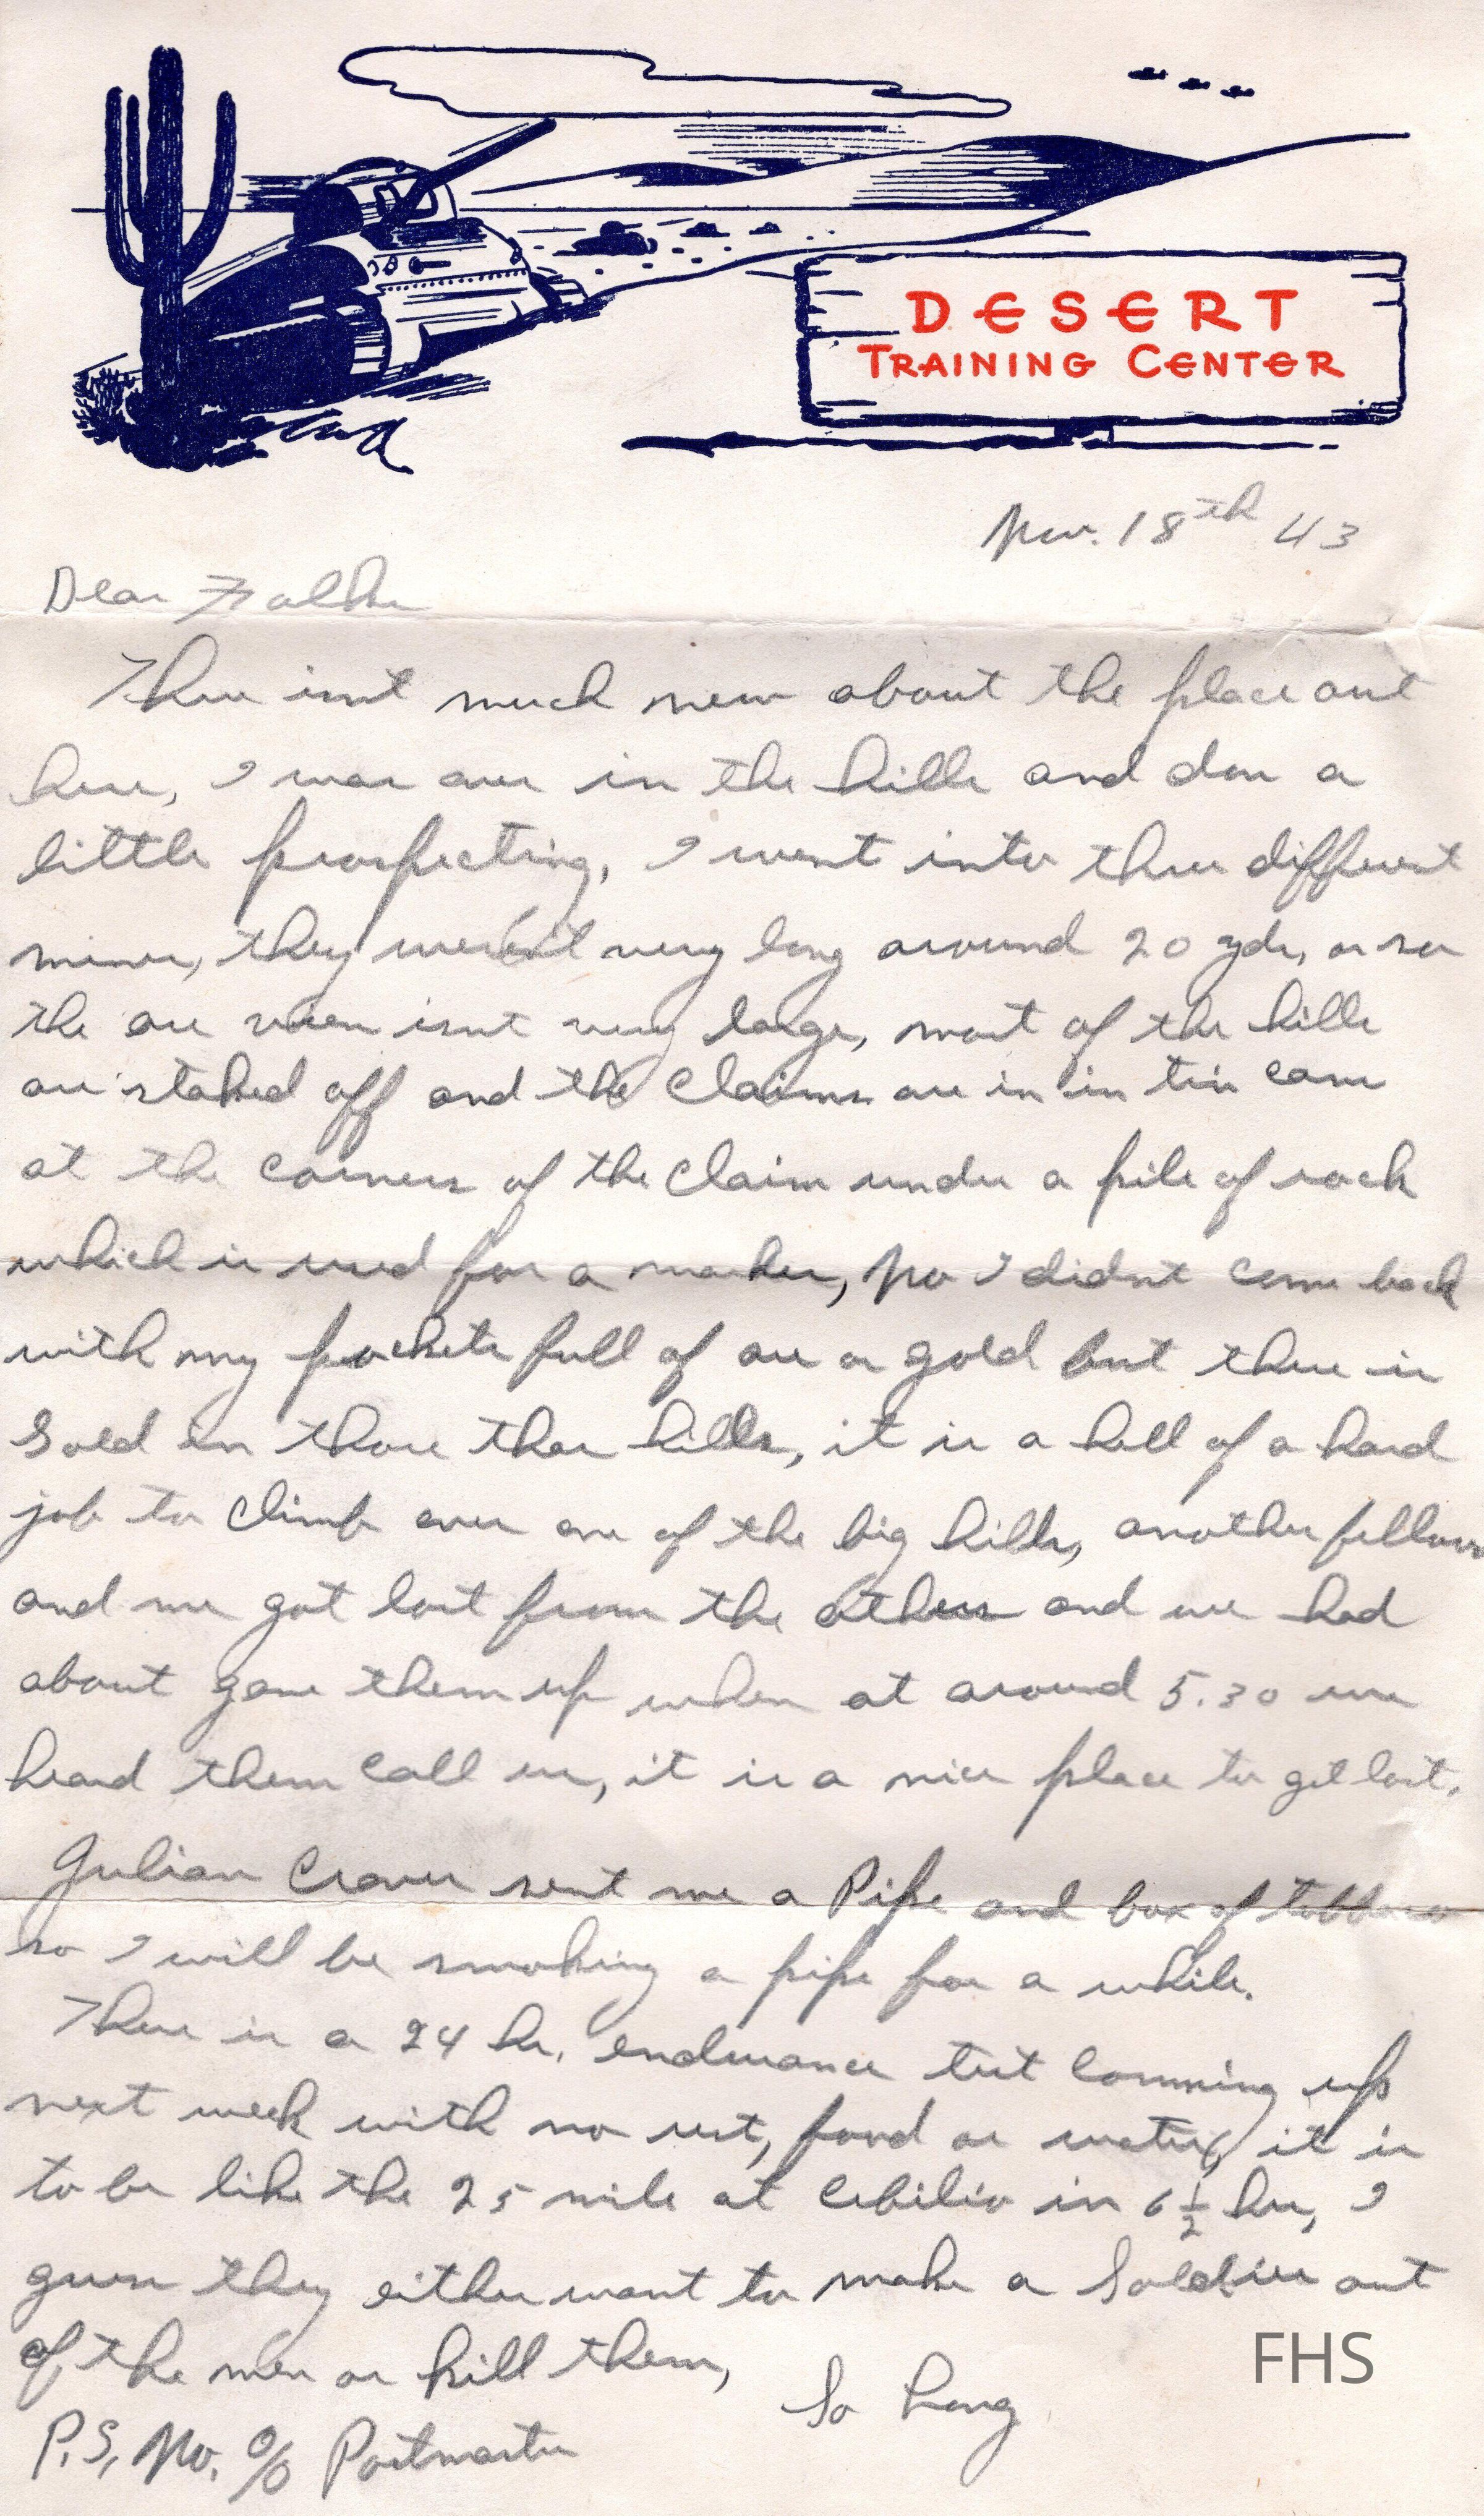 DESERT
TRAINING CENTER
Nov. 18th 43
Dear Folks
There isnt much new about the place out
here, I was over in the hills and don a
little prospecting, I went into three different
mines, they weren't very long around 20 yds, or so
the ore vien isnt very large, most of the hills
are staked off and the claims are in in tin cans
at the corners of the claim under a pile of rock
which is used for a marker, No I didnt come back
with my pockets full of ore or gold but there is
Gold in those thar hills, it is a hell of a hard
job to climb over one of the big hills, another fellow
and me got lost from the others and we had
about gave them up when at around 5.30 we
heard them call us, it is a nice place to get lost.
Julian Craver sent me a Pipe and box of tobbaco
so I will be smoking a pipe for a while.
There is a 24 hr. endurance test comming up
next week with no rest, food or water, it is
to be like the 25 mile at in 6 1/2 hrs, I
guess they either want to make a Soldier out
of the men or kill them,
So Long
P.S, No. % Postmaster
FHS